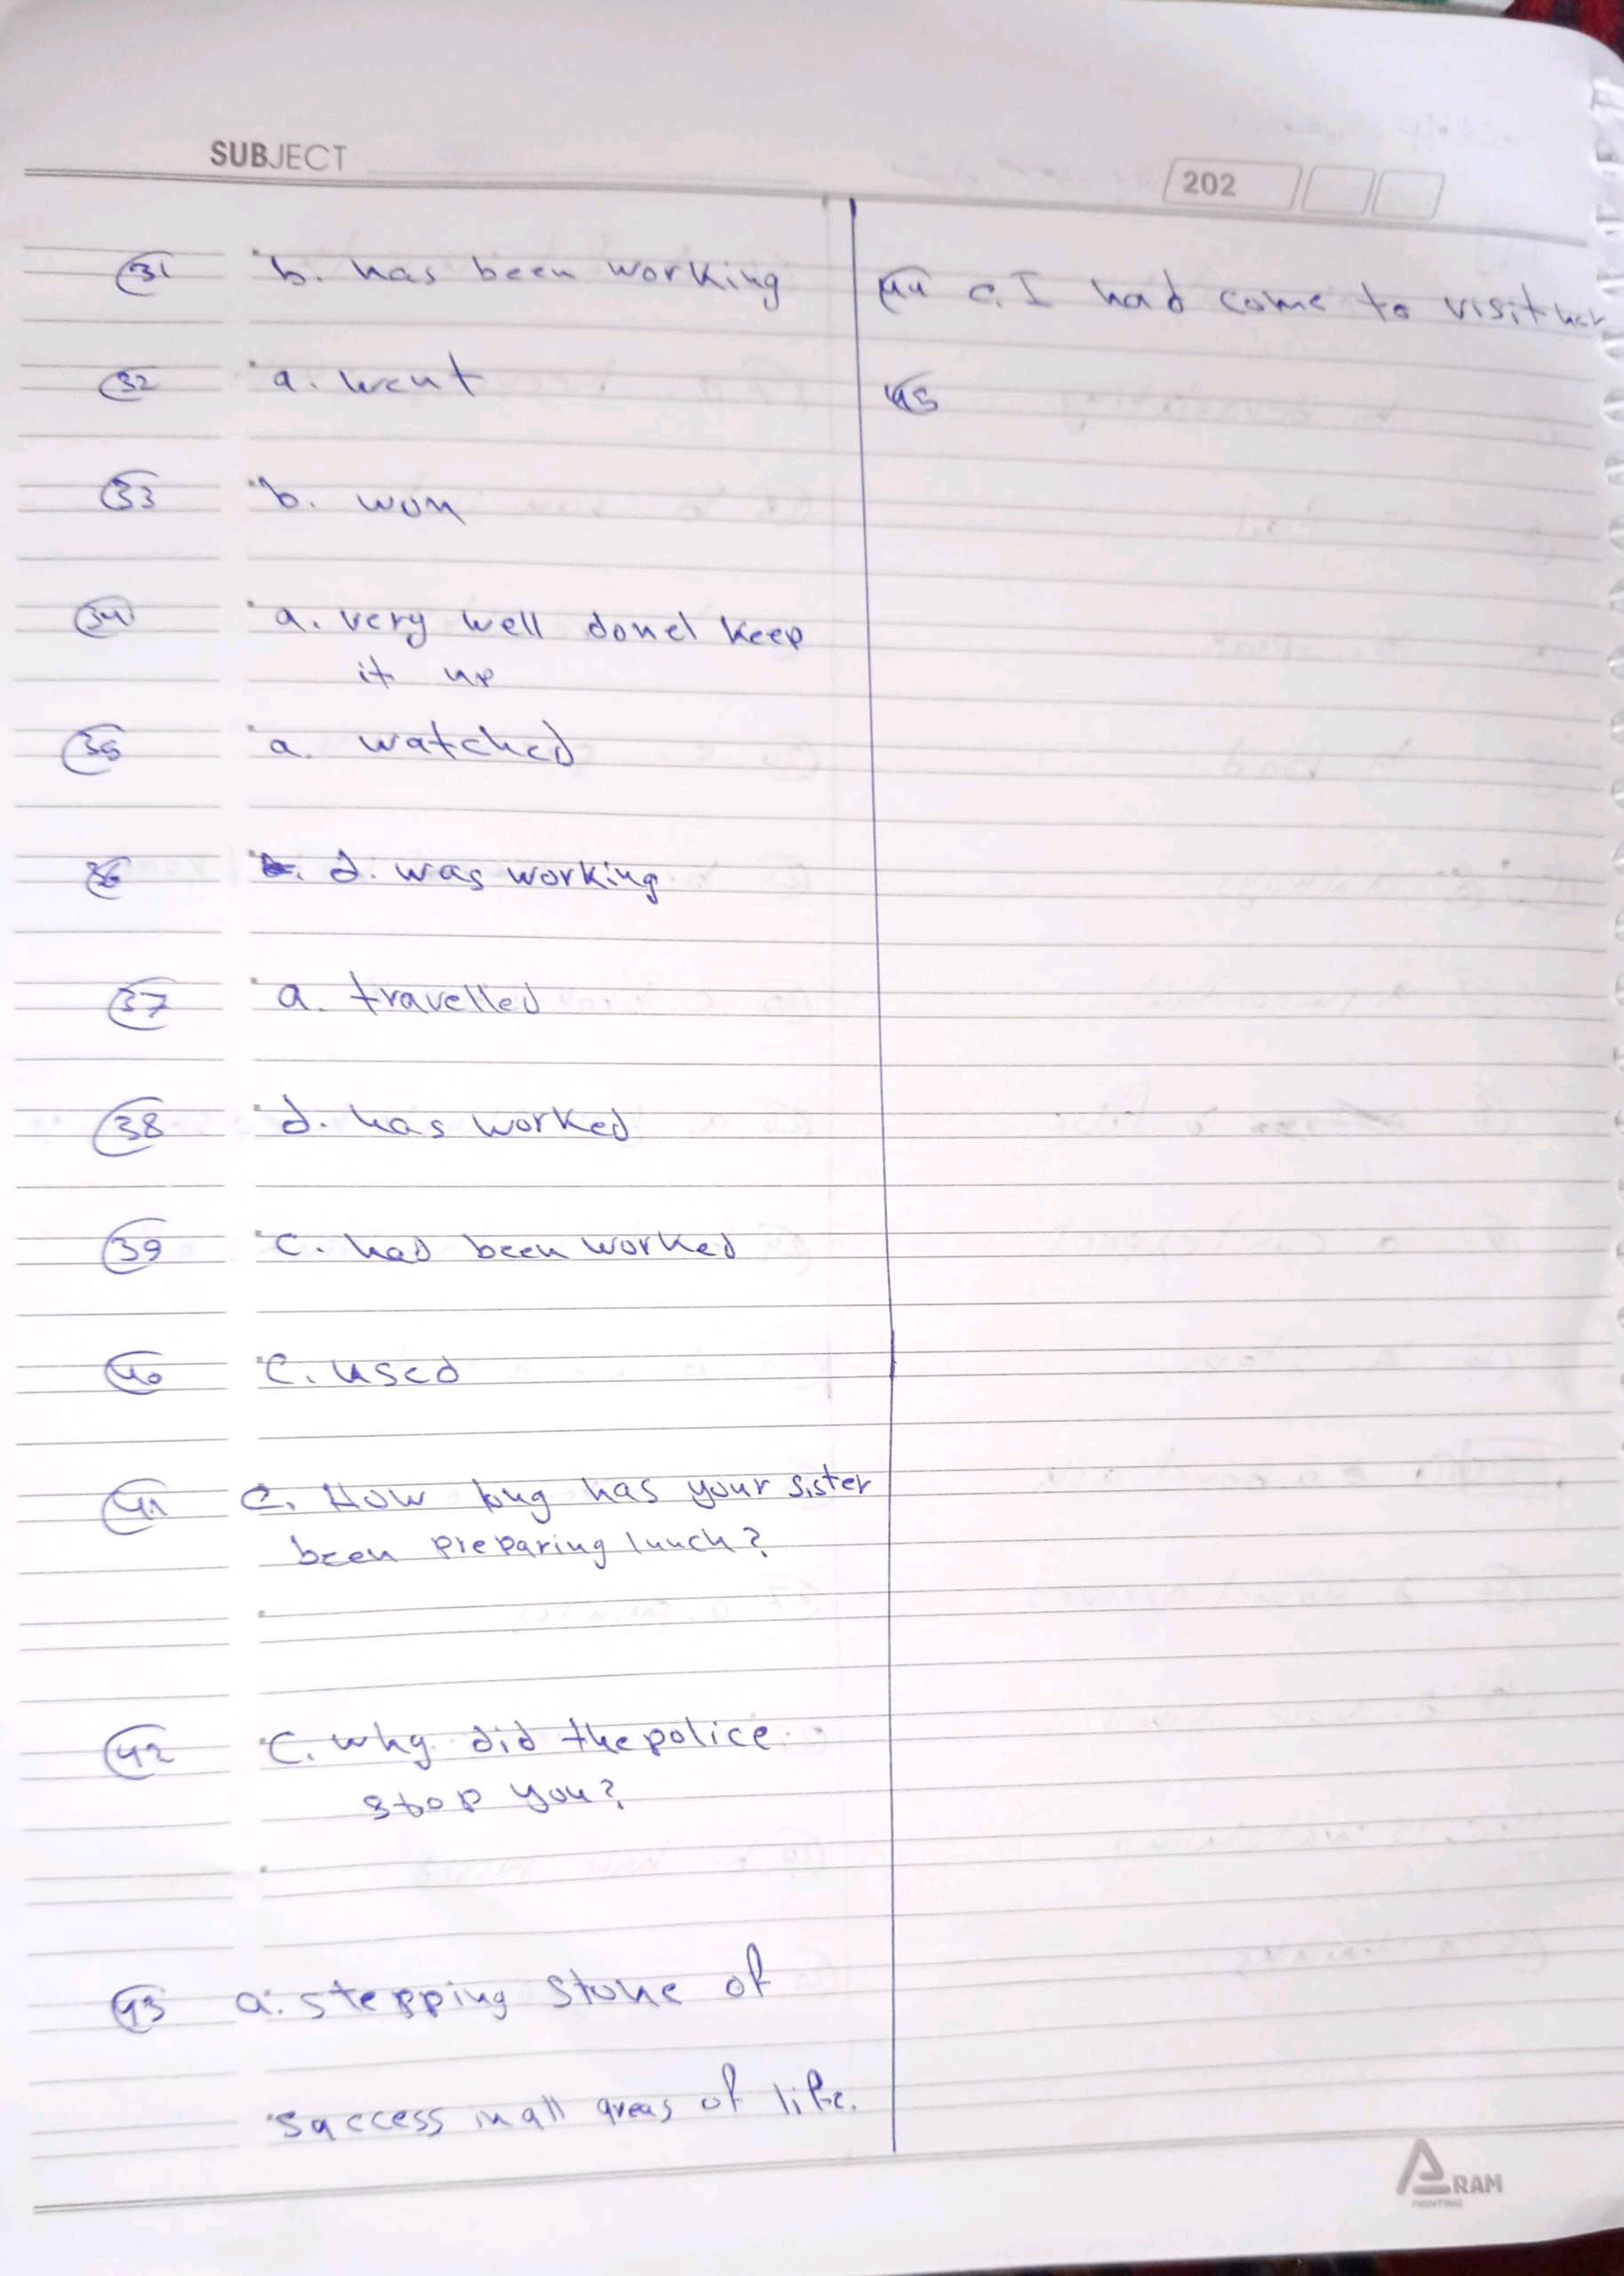 SUBJECT
202
31 b. has been working
32 a. went
33 b. won
34 a. very well done! keep
it up
35 a. watched
36 d. was working
37 a. travelled
38 d. has worked
39 c. had been worked
40 c. used
41 c. How long has your sister
been preparing lunch?
42 c. why did the police
stop you?
43 a. stepping stone of
saccess in all areas of life.
44 c. I had come to visit her
45
ARAM
PRINTING